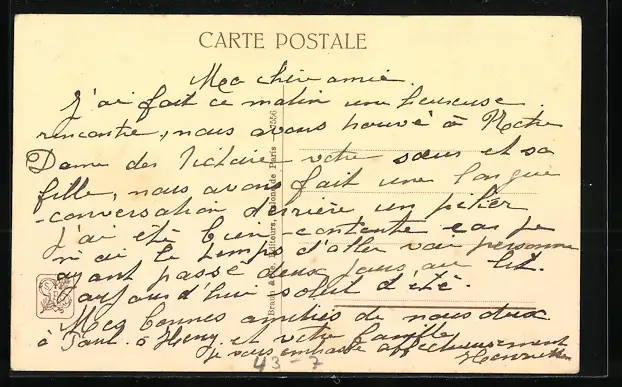 CARTE POSTALE
Ma chère amie
J'ai fait ce matin une heureuse
rencontre, nous avons trouvé à Notre
Dame des Victoire votre sœur et sa
fille, nous avons fait une longue
conversation derrière un pilier
j'ai été bien contente car je
n'ai le temps d'aller voir personne
ayant passé deux jours au lit.
aujourd'hui soleil d'été.
Mes bonnes amitiés de nous deux
à Paul. à Henry. et votre famille
je vous embrasse affectueusement
Henriette
Braun & Cie, Éditeurs, Paris
43-7